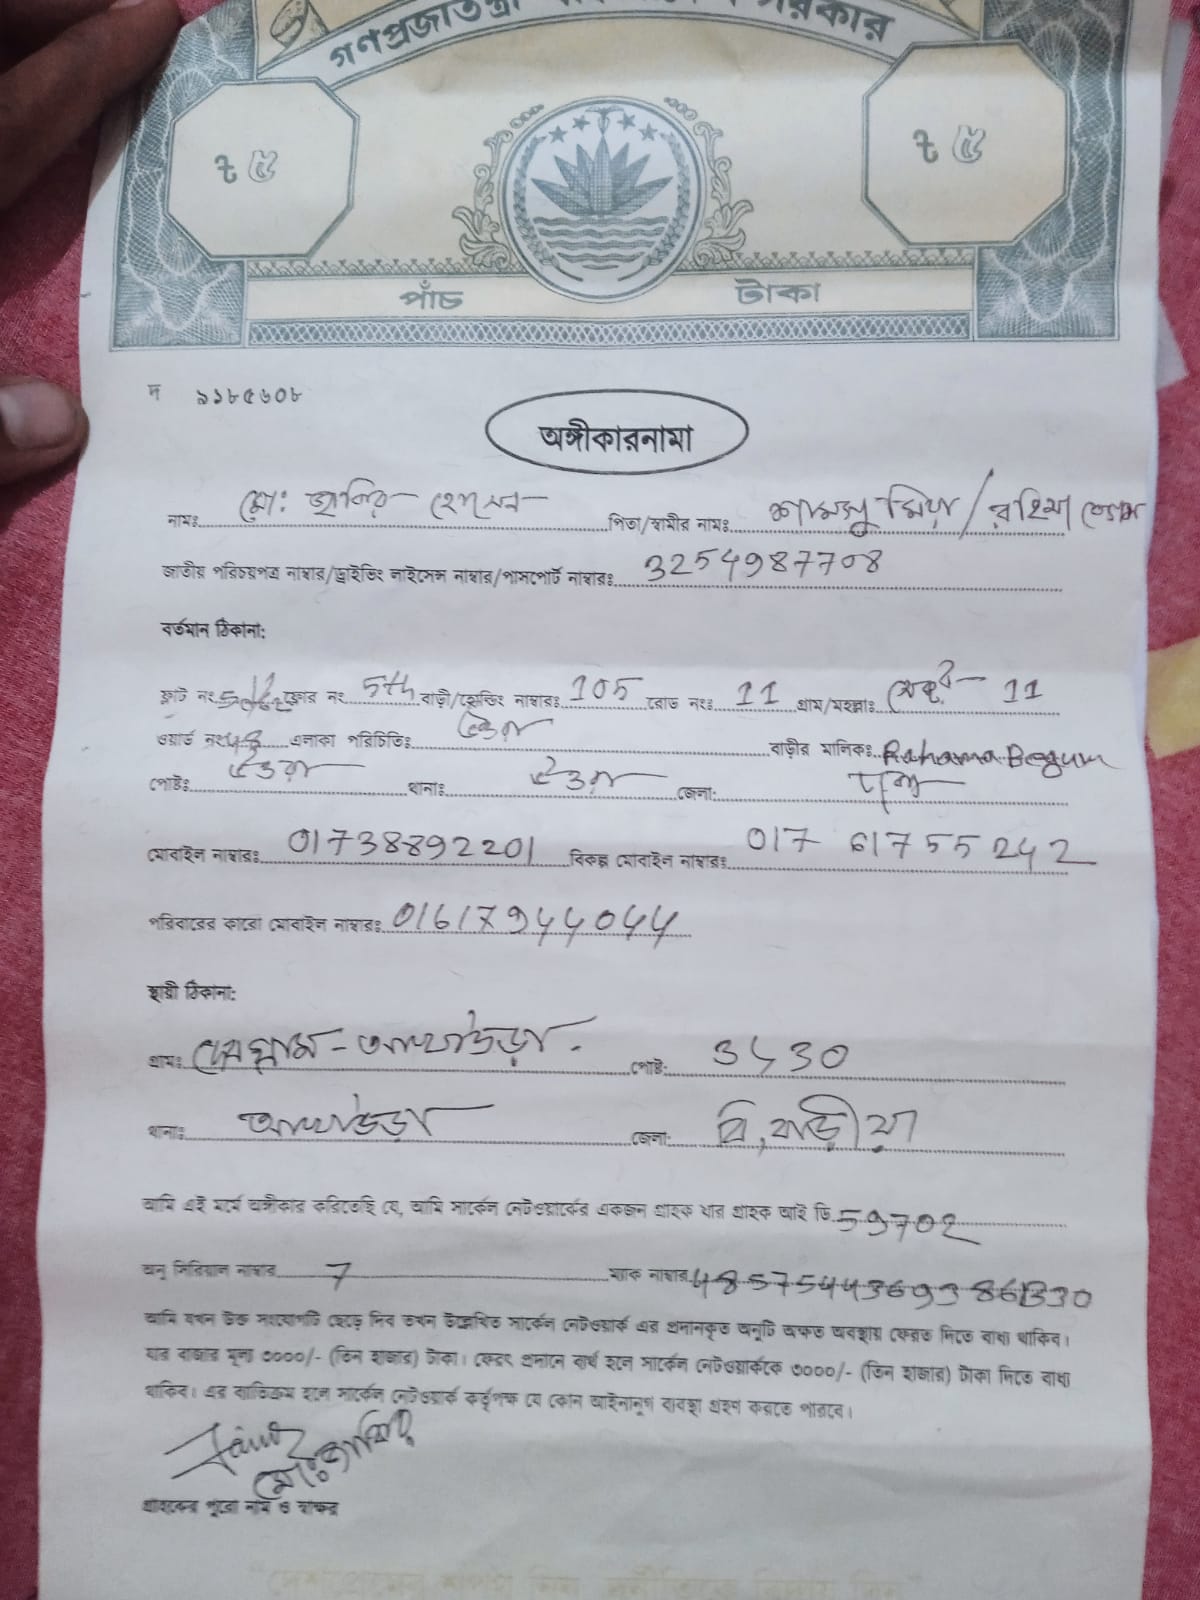 গণপ্রজাতন্ত্রী বাংলাদেশ সরকার
৳ ৫ ৳ ৫
পাঁচ টাকা
দ ৯১৮৫৬০৮
অঙ্গীকারনামা
নামঃ মো: জাকির হোসেন পিতা/স্বামীর নামঃ শামসু মিয়া/রহিমা বেগম
জাতীয় পরিচয়পত্র নাম্বার/ড্রাইভিং লাইসেন্স নাম্বার/পাসপোর্ট নাম্বারঃ 3254987708
বর্তমান ঠিকানা:
ফ্লাট নং ফ্লোর নং 5th বাড়ী/হোল্ডিং নাম্বারঃ 105 রোড নংঃ 11 গ্রাম/মহল্লাঃ সেক্টর 11
ওয়ার্ড নং এলাকা পরিচিতিঃ বাড়ীর মালিকঃ Rahama Begum
পোষ্টঃ উত্তরা থানাঃ উত্তরা জেলা: ঢাকা
মোবাইল নাম্বারঃ 01738892201 বিকল্প মোবাইল নাম্বারঃ 017 61755242
পরিবারের কারো মোবাইল নাম্বারঃ 01617944044
স্থায়ী ঠিকানা:
গ্রামঃ আখাউড়া পোষ্ট: 3450
থানাঃ আখাউড়া জেলা: বি,বাড়ীয়া
আমি এই মর্মে অঙ্গীকার করিতেছি যে, আমি সার্কেল নেটওয়ার্কের একজন গ্রাহক যার গ্রাহক আই ডি 59702
অনু সিরিয়াল নাম্বার 7 ম্যাক নাম্বার
আমি যখন উক্ত সংযোগটি ছেড়ে দিব তখন উল্লেখিত সার্কেল নেটওয়ার্ক এর প্রদানকৃত অনুটি অক্ষত অবস্থায় ফেরত দিতে বাধ্য থাকিব।
যার বাজার মূল্য ৩০০০/- (তিন হাজার) টাকা। ফেরৎ প্রদানে ব্যর্থ হলে সার্কেল নেটওয়ার্ককে ৩০০০/- (তিন হাজার) টাকা দিতে বাধ্য
থাকিব। এর ব্যতিক্রম হলে সার্কেল নেটওয়ার্ক কর্তৃপক্ষ যে কোন আইনানুগ ব্যবস্থা গ্রহণ করতে পারবে।
মোঃ জাকির
গ্রাহকের পুরো নাম ও স্বাক্ষর